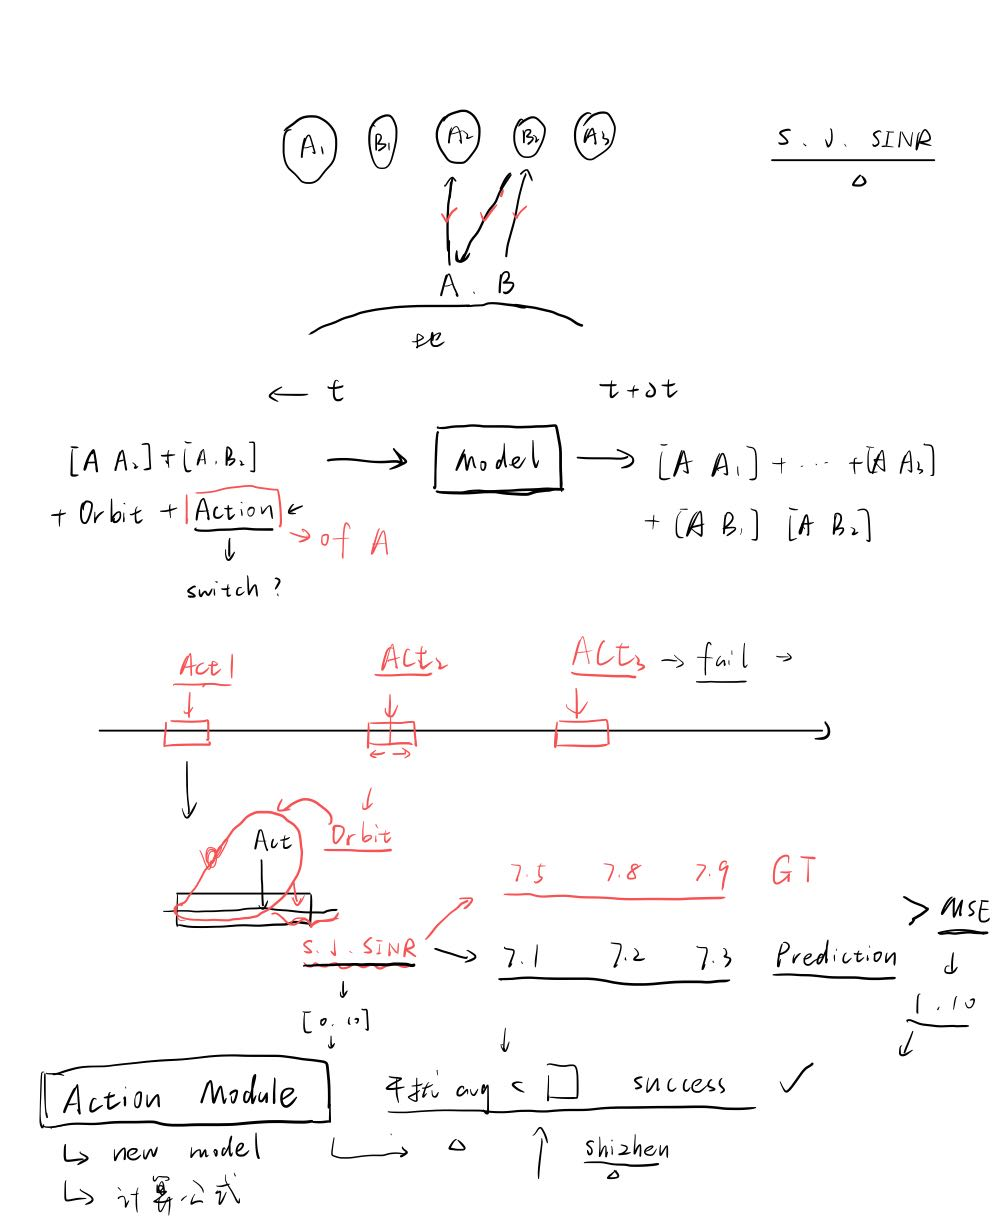 A₁ B₁ A₂ B₂ A₃
S. J. SINR
A. B
← t
t+δt
[A A₂]+[A.B₂]
+ Orbit + Action
→ of A
switch ?
Model
[A A₁] + ... +[A A₃]
+ [A B₁] [A B₂]
Act1
Act₂
Act₃ → fail →
Act
Orbit
S. J. SINR
[0. 10]
7.5 7.8 7.9 GT
7.1 7.2 7.3 Prediction
> MSE
1.10
Action Module
↳ new model
↳ 计算公式
avg < □ success ✓
shizhen